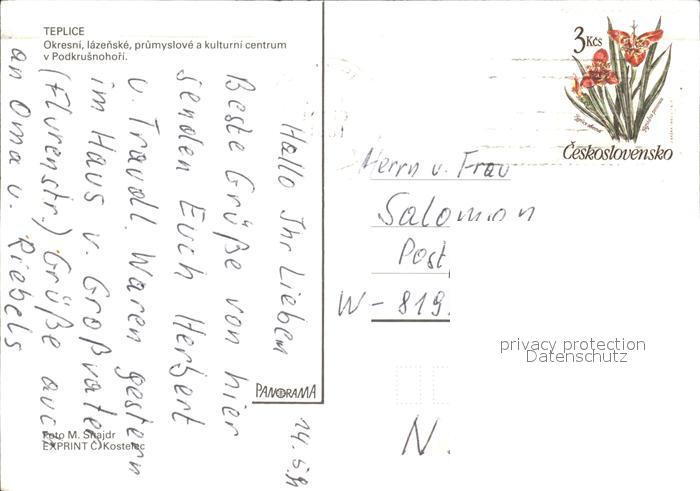 TEPLICE
Okresní, lázeňské, průmyslové a kulturní centrum
v Podkrušnohoří.
Hallo Ihr Lieben
Beste Grüße von hier
senden Euch Herbert
u. Traudl. Waren gestern
im Haus v. Großvater
(Flurenstr.) Grüße auch
an Oma u. Riebels
14.5.91
Foto M. Šnajdr
EXPRINT Č. Kostelec
PANORAMA
3 Kčs
Československo
Herrn u. Frau
Salomon
Post
W-819
N.
privacy protection
Datenschutz